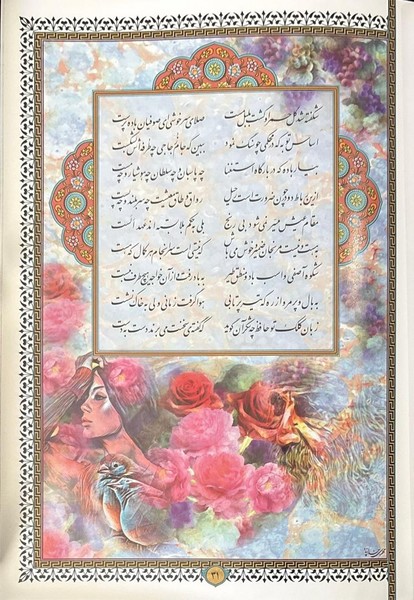 شکفته شد گل حمرا و گشت بلبل مست صلای سرخوشی ای صوفیان باده پرست
اساس توبه که در محکمی چو سنگ نمود ببین که جام زجاجی چه طرفه‌اش بشکست
بیار باده که در بارگاه استغنا چه پاسبان و چه سلطان چه هوشیار و چه مست
ازین رباط دو در چون ضرورت است رحیل رواق و طاق معیشت چه سربلند و چه پست
مقام عیش میسر نمی‌شود بی رنج بلی به حکم بلا بسته‌اند عهد الست
به هست و نیست مرنجان ضمیر و خوش می‌باش که نیستی است سرانجام هر کمال که هست
شکوه آصفی و اسب باد و منطق طیر به باد رفت و از آن خواجه هیچ طرف نبست
به بال و پر مرو از ره که تیر پرتابی هوا گرفت زمانی ولی به خاک نشست
زبان کلک تو حافظ چه شکر آن گوید که گفته سخنت می‌برند دست به دست
۳۱